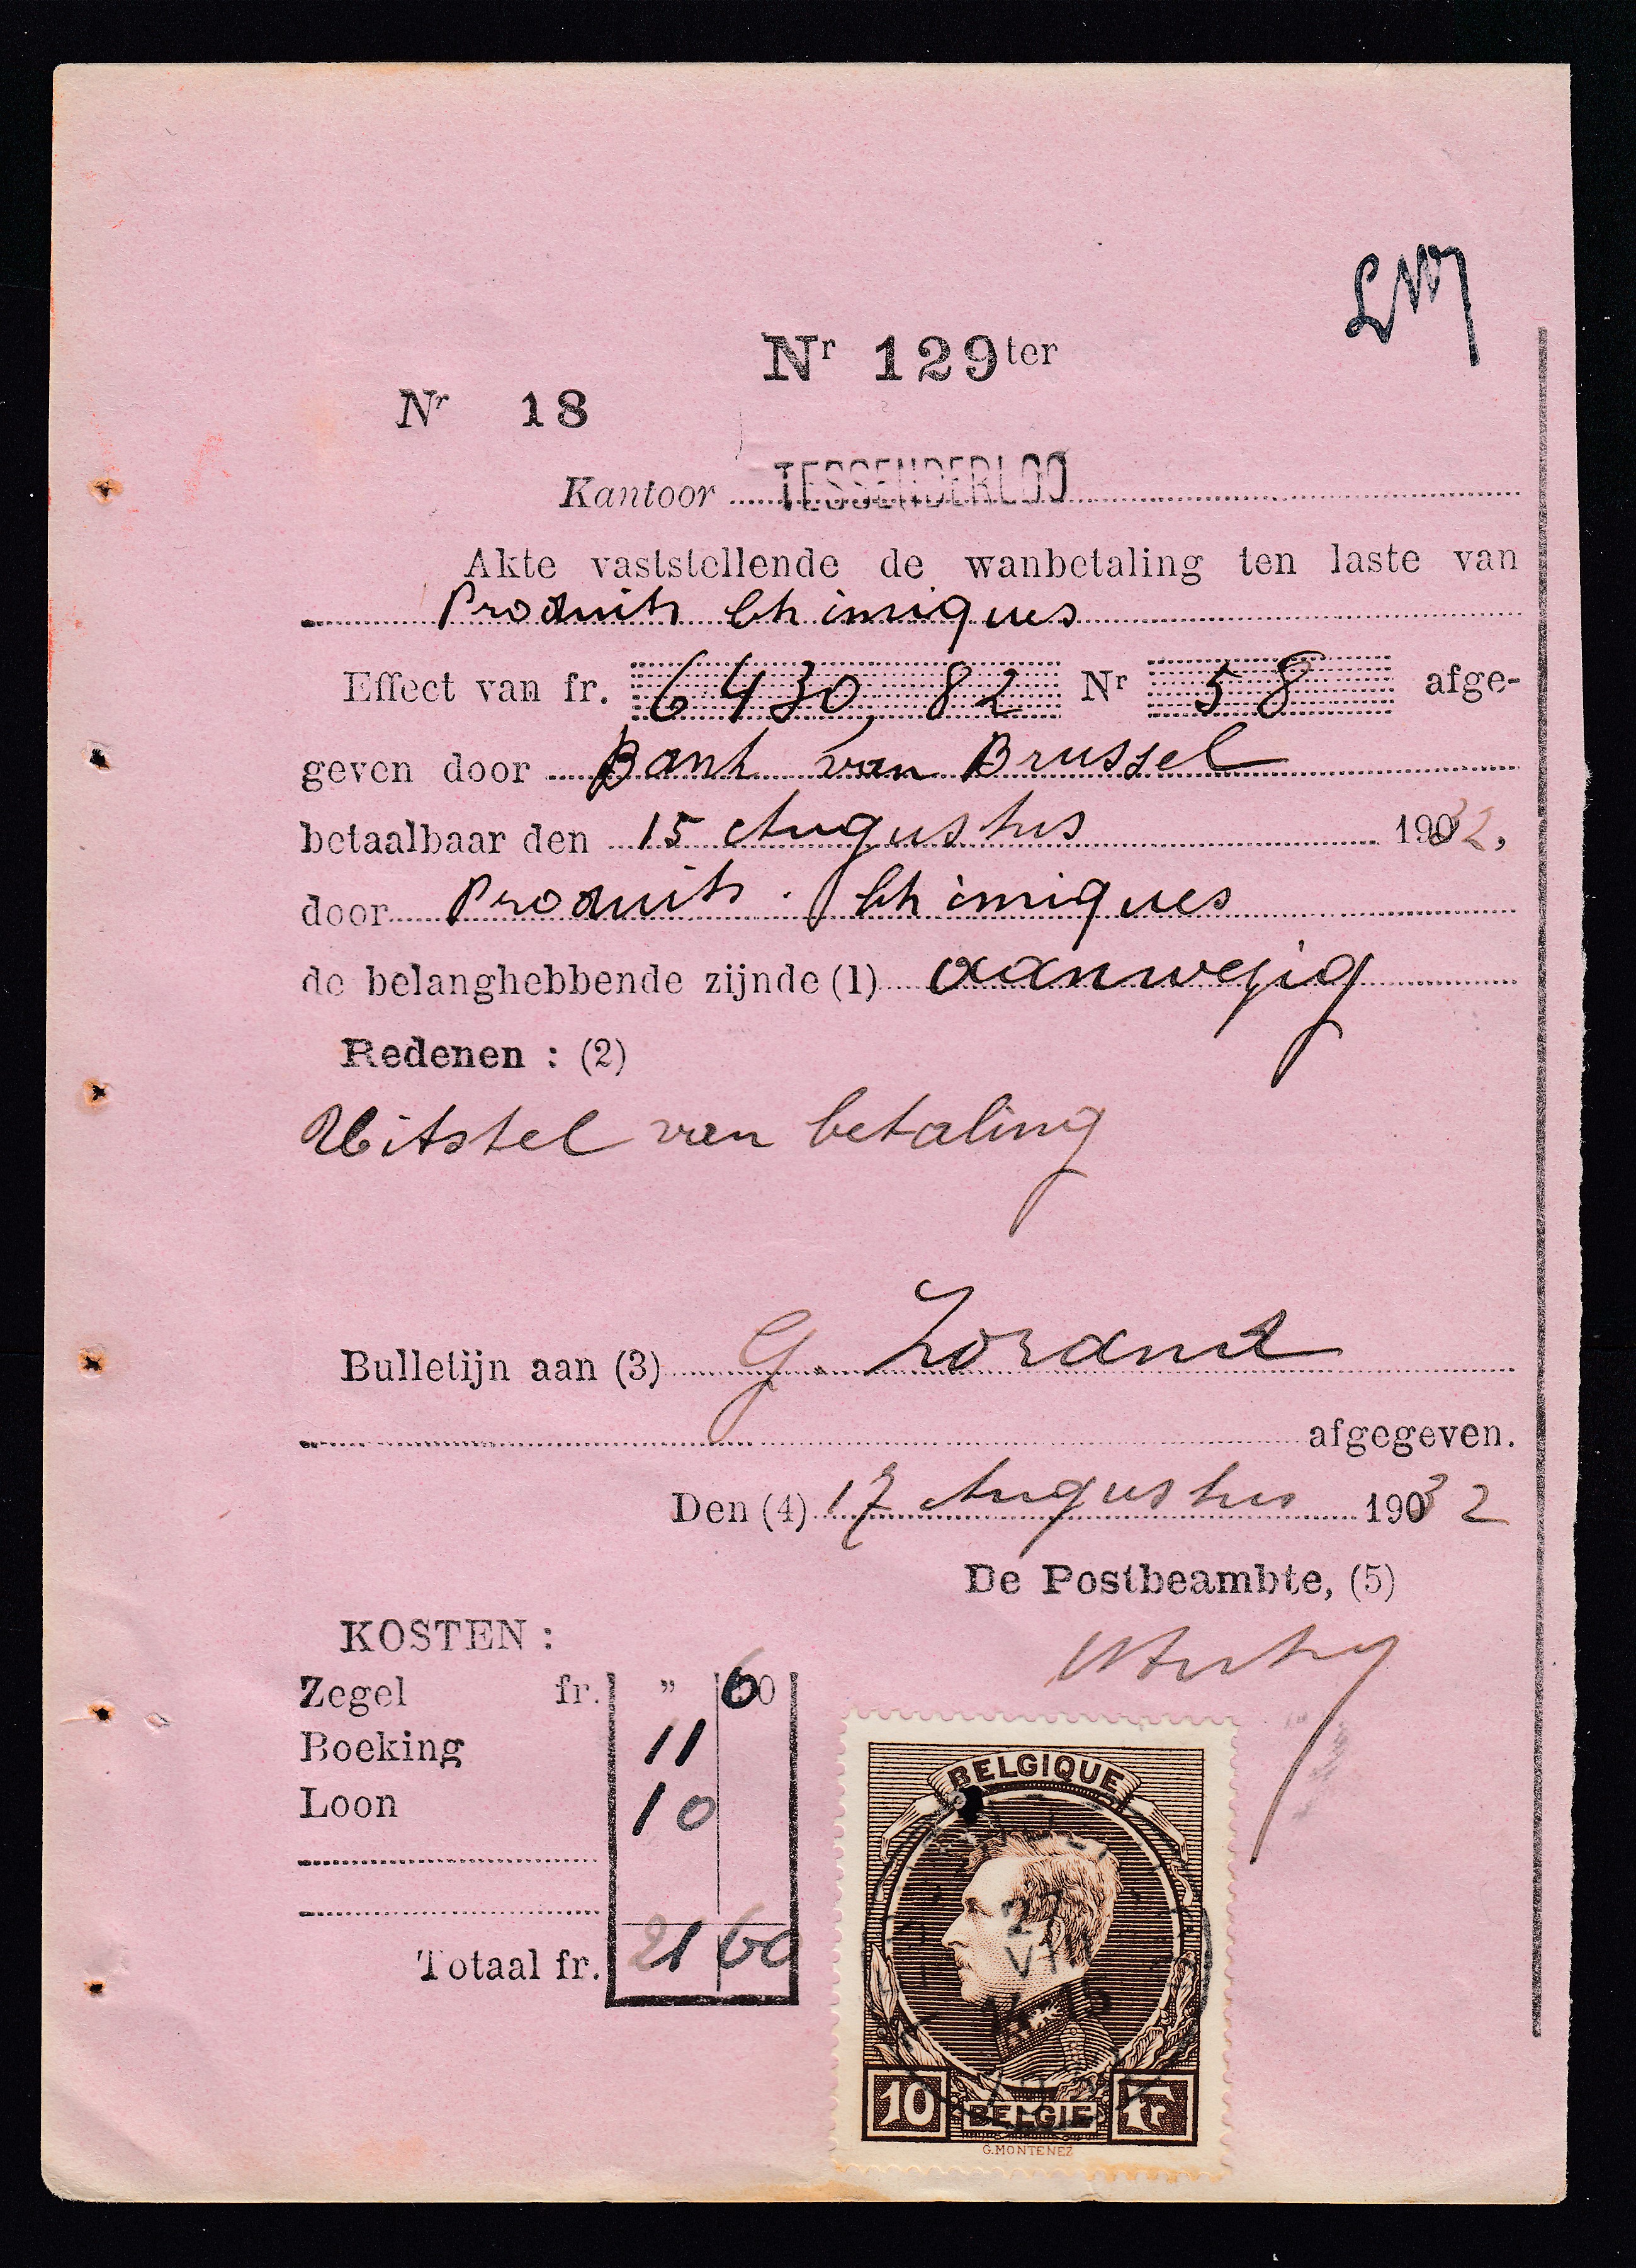 Nr 129ter
Nr 18
Kantoor TESSENDERLOO
Akte vaststellende de wanbetaling ten laste van
Produits Chimiques
Effect van fr. 6430,82 Nr 58 afge-
geven door Bank van Brussel
betaalbaar den 15 Augustus 1932,
door Produits Chimiques
de belanghebbende zijnde (1) aanwezig
Redenen : (2)
Uitstel van betaling
Bulletijn aan (3) G.
afgegeven.
Den (4) 17 Augustus 1932
De Postbeambte, (5)
KOSTEN :
Zegel fr. " 60
Boeking 11
Loon 10
Totaal fr. 21 60
BELGIQUE
10 BELGIE Fr
G.MONTENEZ